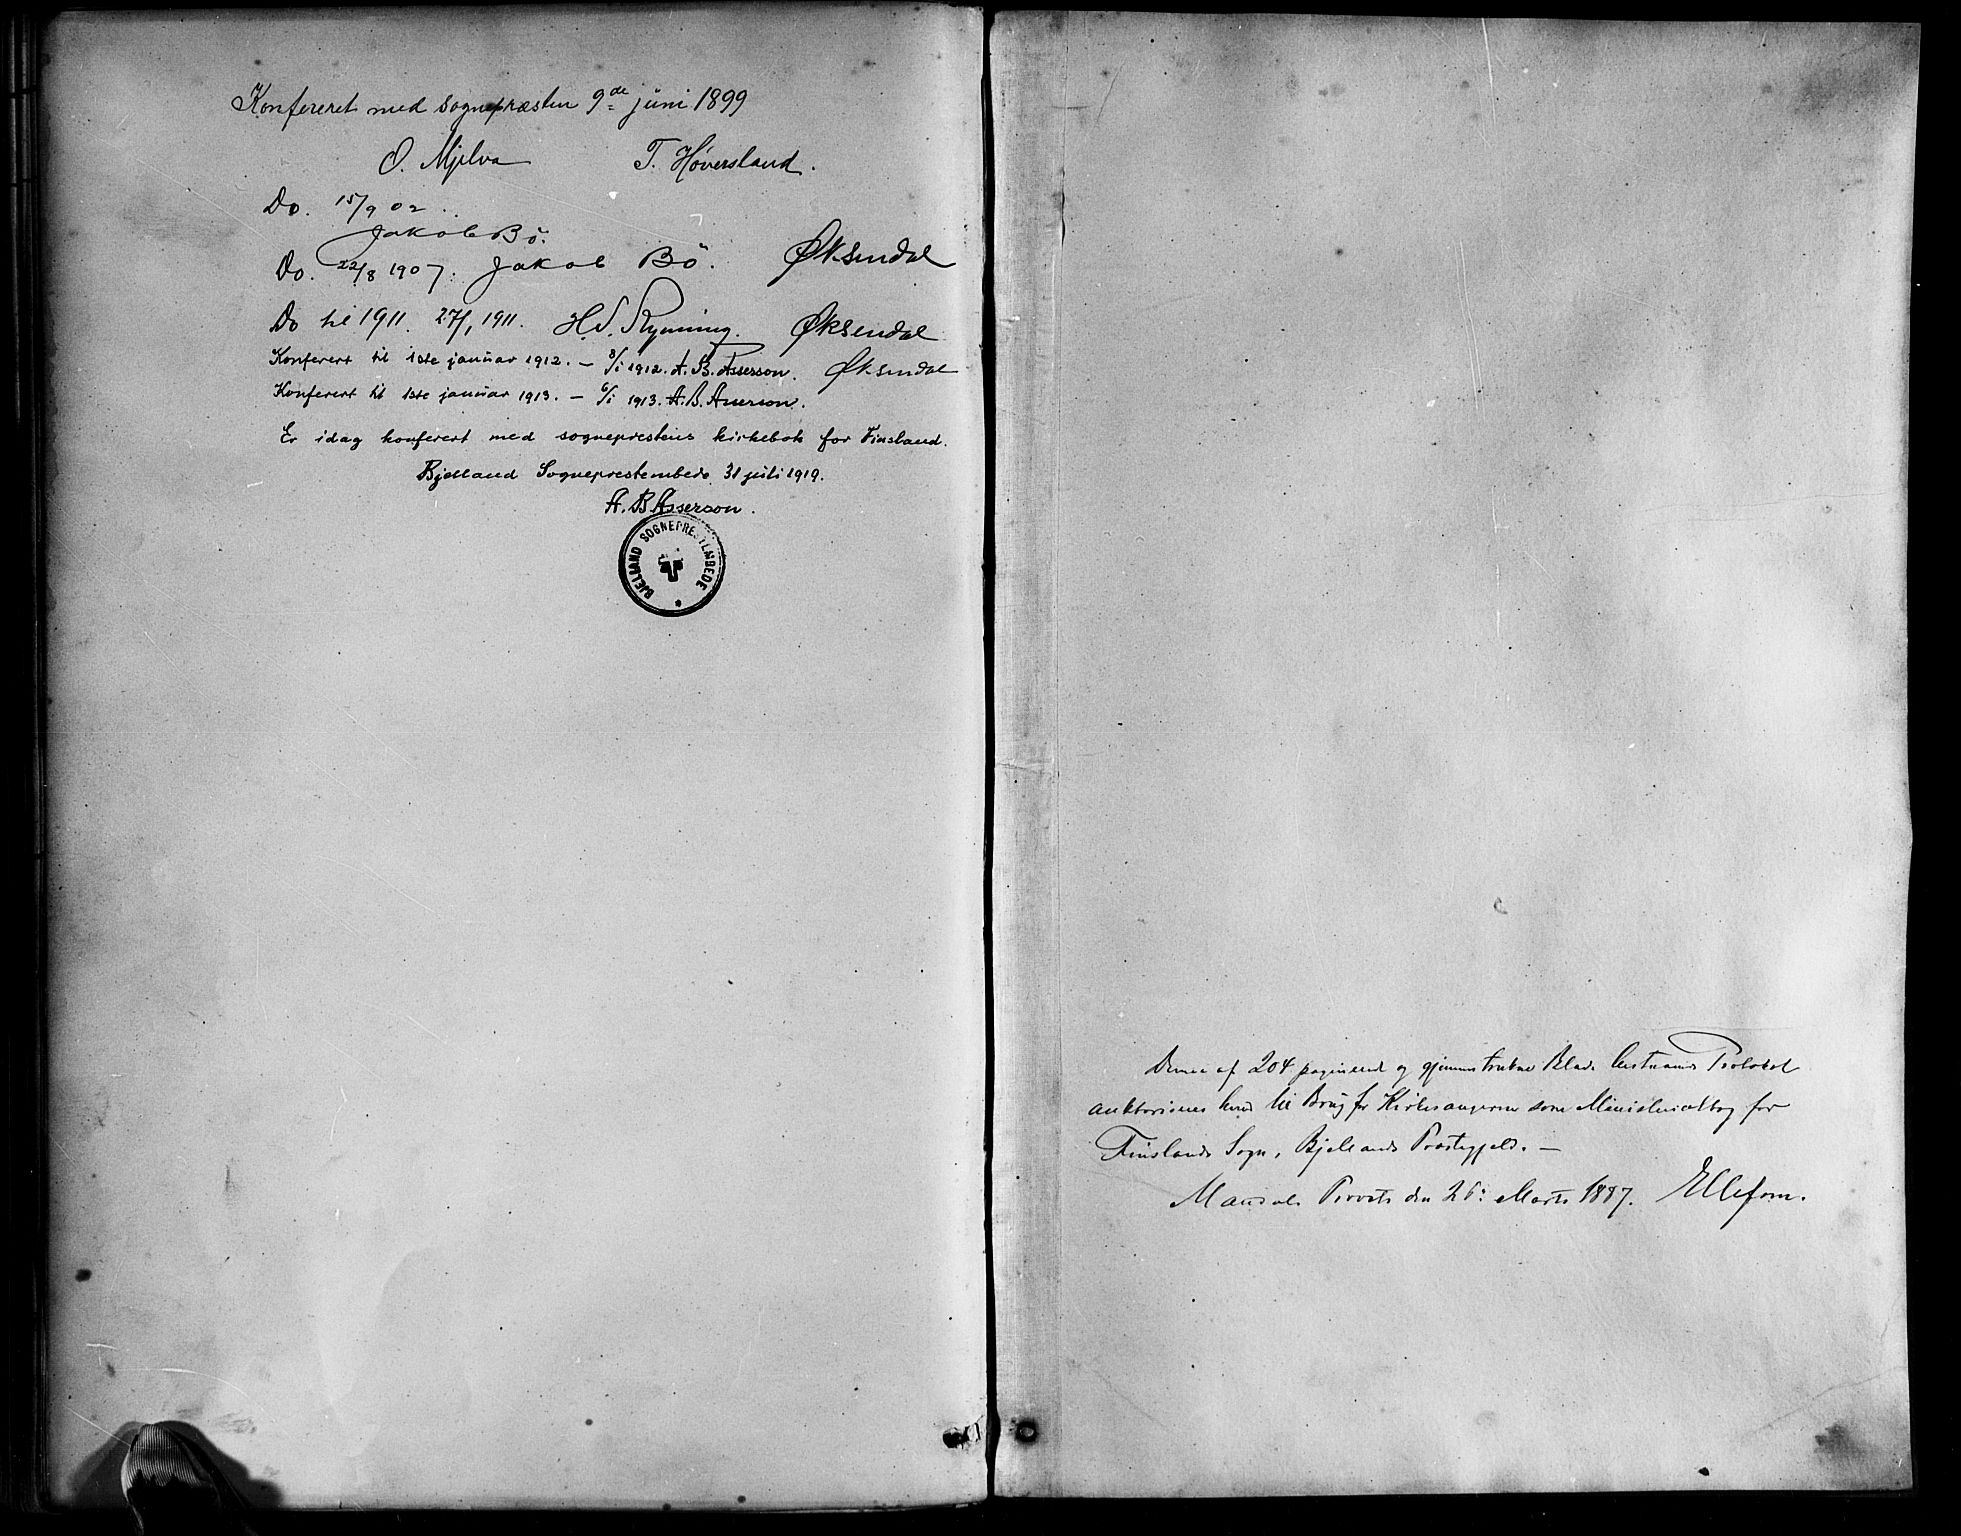 Konfereret med sognepræsten 9de juni 1899
O. Mjelva T. Høversland.
Do. 15/9 02
Jakob Bö.
Do. 22/8 1907. Jakob Bö. Øksendal
Do til 1911. 27/1 1911. H. J. Rynning. Øksendal
Konferert til 1ste januar 1912. – 8/1 1912. A. B. Asserson. Øksendal
Konferert til 1ste januar 1913. – 6/1 1913. A. B. Asserson.
Er idag konferert med sogneprestens kirkebok for Finsland.
Bjelland Sogneprestembede 31 juli 1919.
A. B. Asserson.
BJELLAND SOGNEPRESTEMBEDE
Denne af 204 paginerede og gjennemtrukne Blade bestaaende Protokol
auktoriseres herved til Brug for Kirkesangeren som Ministerialbog for
Finslands Sogn, Bjellands Præstegjeld. —
Mandals Provsti den Marts 1887. Ellefsen.